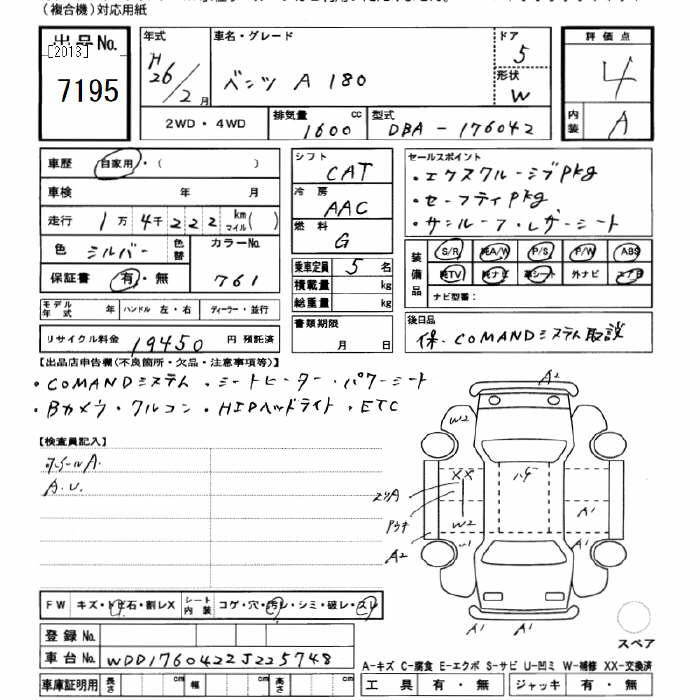 (複合機)対応用紙
出品No.
[2013]
7195
年式
H26/2月
車名・グレード
ベンツ A 180
ドア
5
形状
W
2WD・4WD
排気量
1600 cc
型式
DBA-176042
評価点
4
内装
A
車歴 自家用・( )
車検 年 月
走行 1万4千222 km マイル( )
色 シルバー 色替 カラーNo.
保証書 有・無 761
モデル年式 年 ハンドル 左・右 ディーラー・並行
リサイクル料金 19450 円 預託済
シフト
CAT
冷房
AAC
燃料
G
乗車定員 5 名
積載量 kg
総重量 kg
書類期限
月 日
セールスポイント
・エクスクルーシブpkg
・セーフティpkg
・サンルーフ・レザーシート
装備品
S/R 純A/W P/S P/W ABS
純TV 純ナビ 革シート 外ナビ エアB
ナビ型番:
後日品
保・COMANDシステム取説
【出品店申告欄(不良箇所・欠品・注意事項等)】
・COMANDシステム・シートヒーター・パワーシート
・Bカメラ・クルコン・HIDヘッドライト・ETC
【検査員記入】
ホイールA.
A.U.
A2
W2
XX
ハゲ
エリA
Pウチ
W2
A1
A2
A1
A1
A1
スペア
FW キズ・トビ石・割レX シート内装 コゲ・穴・汚レ・シミ・破レ・スレ
登録No.
車台No. WDD1760422J225748
車庫証明用 長さ cm 幅 cm 高さ cm
A-キズ C-腐食 E-エクボ S-サビ U-凹ミ W-補修 XX-交換済
工具 有・無 ジャッキ 有・無